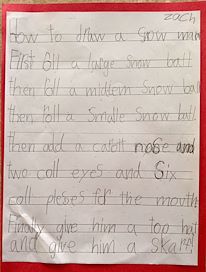 zach
How to draw a snow man
First Roll a large snow ball
then Roll a midiem snow ball
then Roll a Smalle snow ball
then add a carott nose and
two coll eyes and Six
coll pleses for the mouth
Finally give him a top hat
and give him a